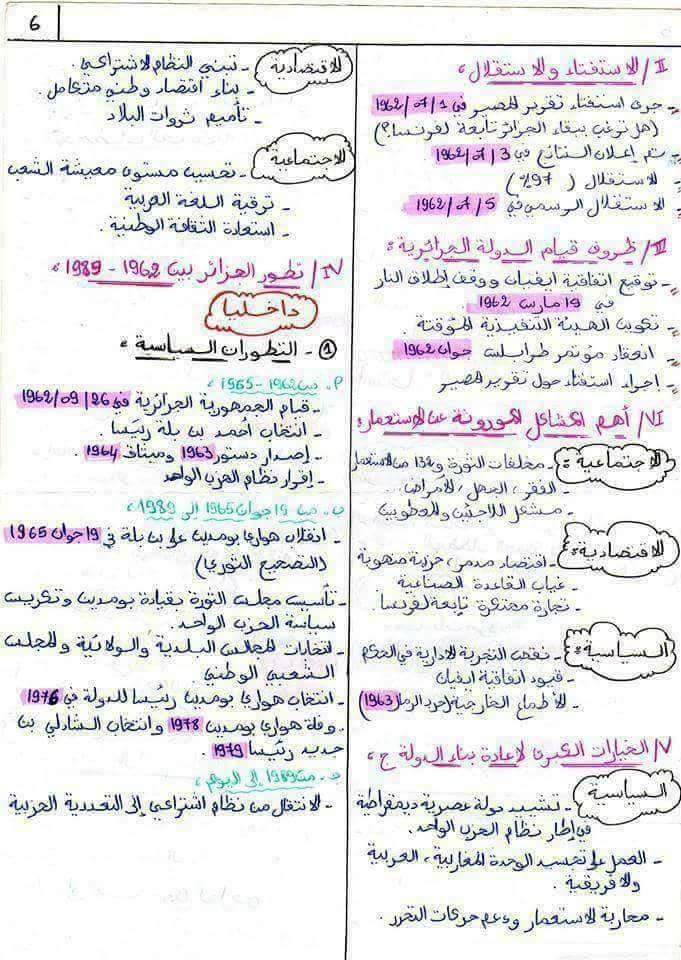 6
II/ الاستفتاء والاستقلال :
- جرى استفتاء تقرير المصير في 1/07/1962
(هل ترغب ببقاء الجزائر تابعة لفرنسا؟)
- تم إعلان النتائج في 3/07/1962
للاستقلال (97%)
- الاستقلال الرسمي في 5/07/1962
III/ ظروف قيام الدولة الجزائرية :
- توقيع اتفاقية ايفيان ووقف إطلاق النار
في 19 مارس 1962
- تكوين الهيئة التنفيذية المؤقتة
- انعقاد مؤتمر طرابلس جوان 1962
- اجراء استفتاء حول تقرير المصير
VI/ أهم المشاكل الموروثة عن الاستعمار :
الاجتماعية : - مخلفات الثورة و 132 من الاستعمار
- الفقر، الجهل، الأمراض
- مشكل اللاجئين والمعطوبين
الاقتصادية : - اقتصاد مدمر، خزينة منهوبة
- غياب القاعدة الصناعية
- تجارة محتكرة تابعة لفرنسا.
السياسية : - نقص التجربة الادارية في الحكم
- قيود اتفاقية ايفيان
- الأطماع الخارجية (حرب الرمال 1963)
V/ الخيارات الكبرى لإعادة بناء الدولة ج :
السياسية - تشييد دولة عصرية ديمقراطية
في إطار نظام الحزب الواحد.
- العمل على تجسيد الوحدة المغاربية، العربية
والافريقية.
- محاربة الاستعمار ودعم حركات التحرر.
الاقتصادية - تبني النظام الاشتراكي.
- بناء اقتصاد وطني متكامل.
- تأميم ثروات البلاد
الاجتماعية - تحسين مستوى معيشة الشعب
- ترقية اللغة العربية
- استعادة الثقافة الوطنية.
IV/ تطور الجزائر بين 1962 - 1989 :
داخليا
1 - التطورات السياسية :
أ- من 1962 - 1965 :
- قيام الجمهورية الجزائرية في 26/09/1962
- انتخاب أحمد بن بلة رئيسا.
- إصدار دستور 1963 وميثاق 1964.
- إقرار نظام الحزب الواحد
ب- من 19 جوان 1965 إلى 1989 :
- انقلاب هواري بومدين على بن بلة في 19 جوان 1965
(التصحيح الثوري)
- تأسيس مجلس الثورة بقيادة بومدين وتكريس
سياسة الحزب الواحد.
- انتخابات المجالس البلدية والولائية والمجلس
الشعبي الوطني
- انتخاب هواري بومدين رئيسا للدولة في 1976
- وفاة هواري بومدين 1978 وانتخاب الشاذلي بن
جديد رئيسا 1979.
ج- من 1989 إلى اليوم :
- الانتقال من نظام اشتراكي إلى التعددية الحزبية